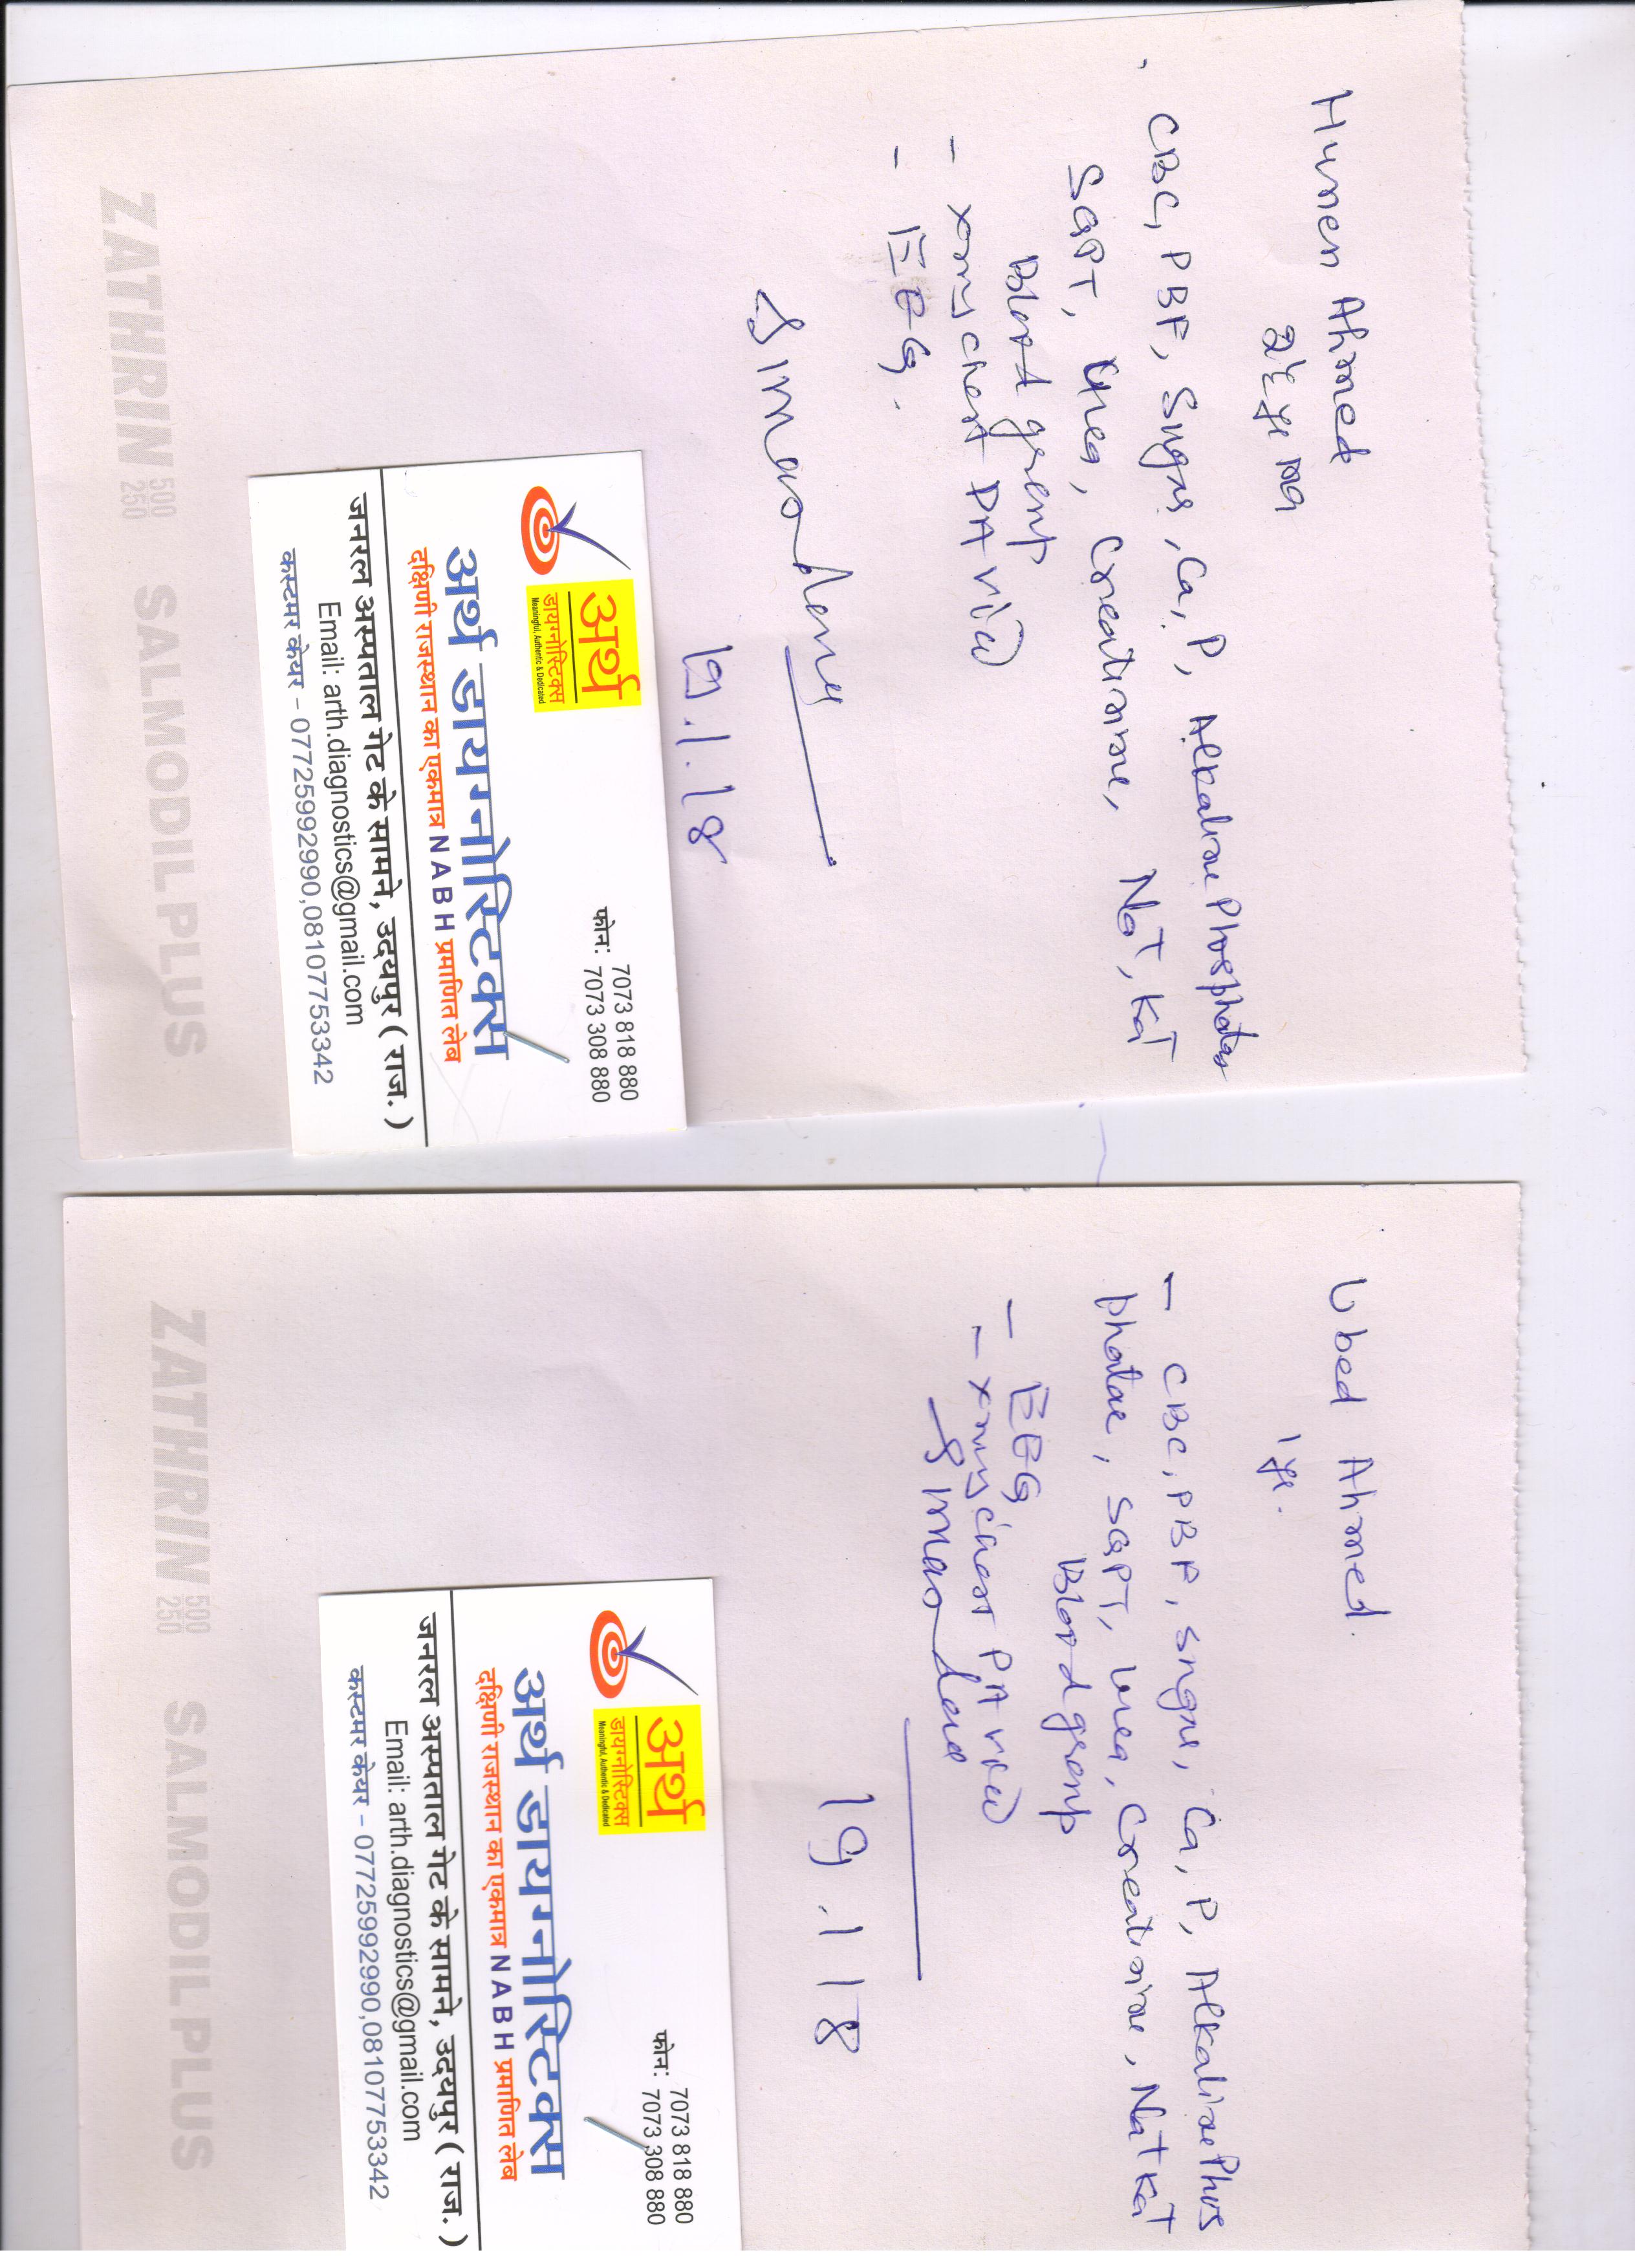 Humen Ahmed
CBC, PBF, Sugar, Ca, P, Alkaline Phosphatas
SGPT, Urea, Creatinine, Na+, Ka+
Blood group
- xray chest PA view
- EEG.
19.1.18
फोन: 7073 818 880
7073 308 880
अर्थ
डायग्नोस्टिक्स
Meaningful, Authentic & Dedicated
अर्थ डायग्नोस्टिक्स
दक्षिणी राजस्थान का एकमात्र NABH प्रमाणित लेब
जनरल अस्पताल गेट के सामने, उदयपुर ( राज. )
Email: arth.diagnostics@gmail.com
कस्टमर केयर - 07725992990,08107753342
ZATHRIN 500 250 SALMODIL PLUS
Ubed Ahmed.
1 yr.
- CBC, PBF, Sugar, Ca, P, Alkaline Phos
phatae, SGPT, Urea, Creatinine, Na+ Ka+
Blood group
- EEG
- xray chest PA view
19.1.18
फोन: 7073 818 880
7073 308 880
अर्थ
डायग्नोस्टिक्स
Meaningful, Authentic & Dedicated
अर्थ डायग्नोस्टिक्स
दक्षिणी राजस्थान का एकमात्र NABH प्रमाणित लेब
जनरल अस्पताल गेट के सामने, उदयपुर ( राज. )
Email: arth.diagnostics@gmail.com
कस्टमर केयर - 07725992990,08107753342
ZATHRIN 500 250 SALMODIL PLUS